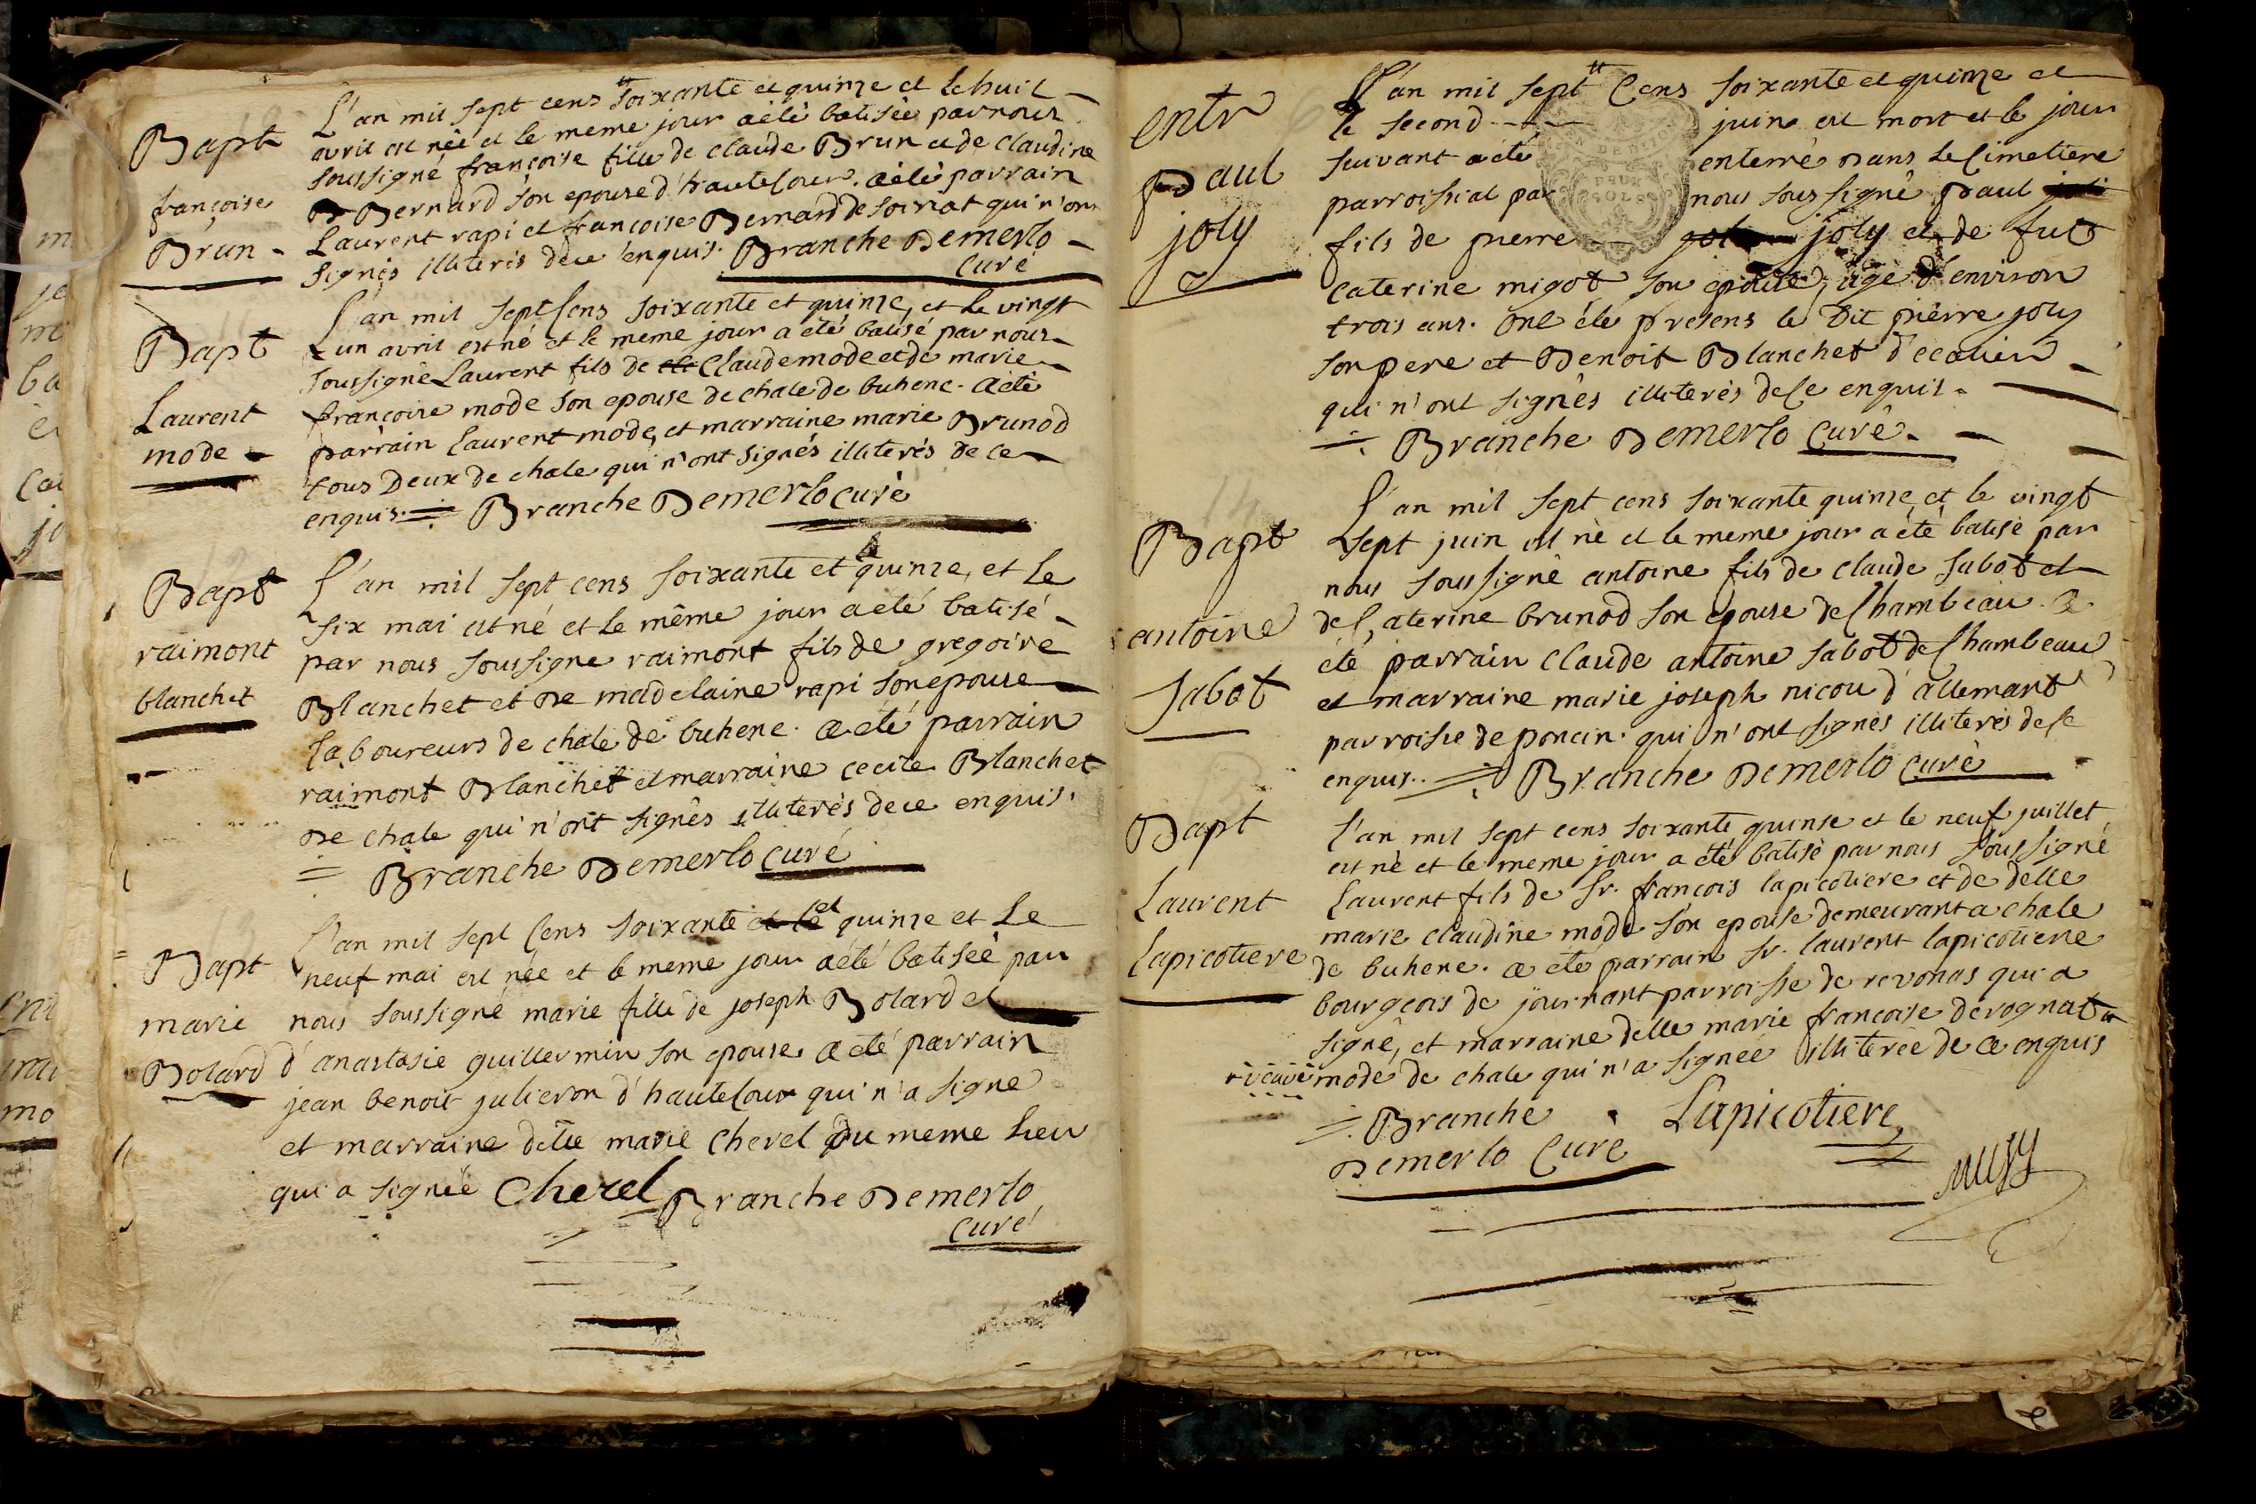 Bapt
françoise
Brun
L'an mil sept cens soixante et quinze et le huit
avril est née et le meme jour a été batisée par nous
soussigné françoise fille de claude Brun et de claudine
Bernard son epouse d'hautecour. a été parrain
Laurent rapi et françoise Bernard de soirat qui n'ont
signés illiterés de ce enquis. Branche Demerlo
curé
Bapt
Laurent
mode
L'an mil sept Cens soixante et quinze, et le vingt
un avril est né et le meme jour a été batisé par nous
soussigné Laurent fils de Claude mode et de marie
françoise mode son epouse de chale de buhene. a été
parrain laurent mode, et marraine marie Brunod
tous Deux de chale qui n'ont signés illiterés de ce
enquis. Branche Demerlo curé
Bapt
raimont
blanchet
L'an mil sept cens soixante et quinze, et le
six mai est né et le même jour a été batisé
par nous soussigne raimont fils de gregoire
Blanchet et De madelaine rapi son epouse
laboureurs de chale de buhene. a été parrain
raimont Blanchet et marraine cecile Blanchet
De chale qui n'ont signês illiterés de ce enquis.
Branche Demerlo curé
Bapt
marie
Bolard
L'an mil sept Cens soixante et le et quinze et Le
neuf mai est née et le meme jour a été batisée par
nous soussigné marie fille de joseph Bolard et
d'anastasie guillermin son epouse a été parrain
jean benoit julieron d'hautecour qui n'a signe
et marraine delle marie Cherel Du meme lieu
qui a signée Cherel Branche Demerlo
curé
entr
Paul
joly
L'an mil sept Cens soixante et quinze et
le second juin est mort et le jour
suivant a été enterré Dans le Cimetiere
parroissial par nous soussigné Paul joli
fils de pierre joly et de fut
caterine migot son epouse, agé d'environ
trois ans. Ont été presens le Dit pierre joly
son pere et Benoit Blanchet d'
qui n'ont signês illiterés de Ce enquis.
Branche Demerlo curé.
Bapt
antoine
Sabot
L'an mil sept cens soixante quinze, et le vingt
sept juin est né et le meme jour a été batisé par
nous soussigné antoine fils de claude Sabot et
de Caterine brunod son epouse de Chambeau. a
été parrain Claude antoine Sabot de Chambeau
et marraine marie joseph nicou d'allemant
parroisse de poncin. qui n'ont signés illiterés de Ce
enquis. Branche Demerlo curé
Bapt
Laurent
Lapicotiere
L'an mil sept cens soixante quinse et le neuf juillet
est né et le meme jour a été batisé par nous soussigné
Laurent fils de Sr. francois lapicotiere et de delle
marie claudine mode son epouse demeurant a chale
de buhene. a été parrain Sr. laurent lapicotiere
bourgeois de journant parroisse de revonas qui a
signé, et marraine delle marie francoise derognat
veuve mode de chale qui n'a signée illiterée de ce enquis
Branche Lapicotiere
Demerlo Curé